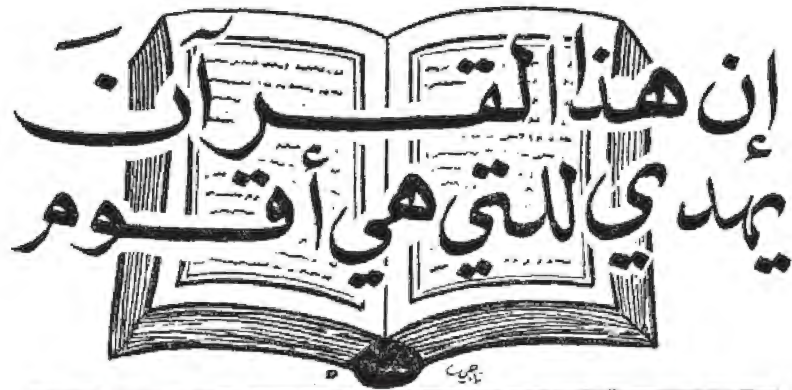 إن هذا القرآنَ
يهدي للتي هي أقوم